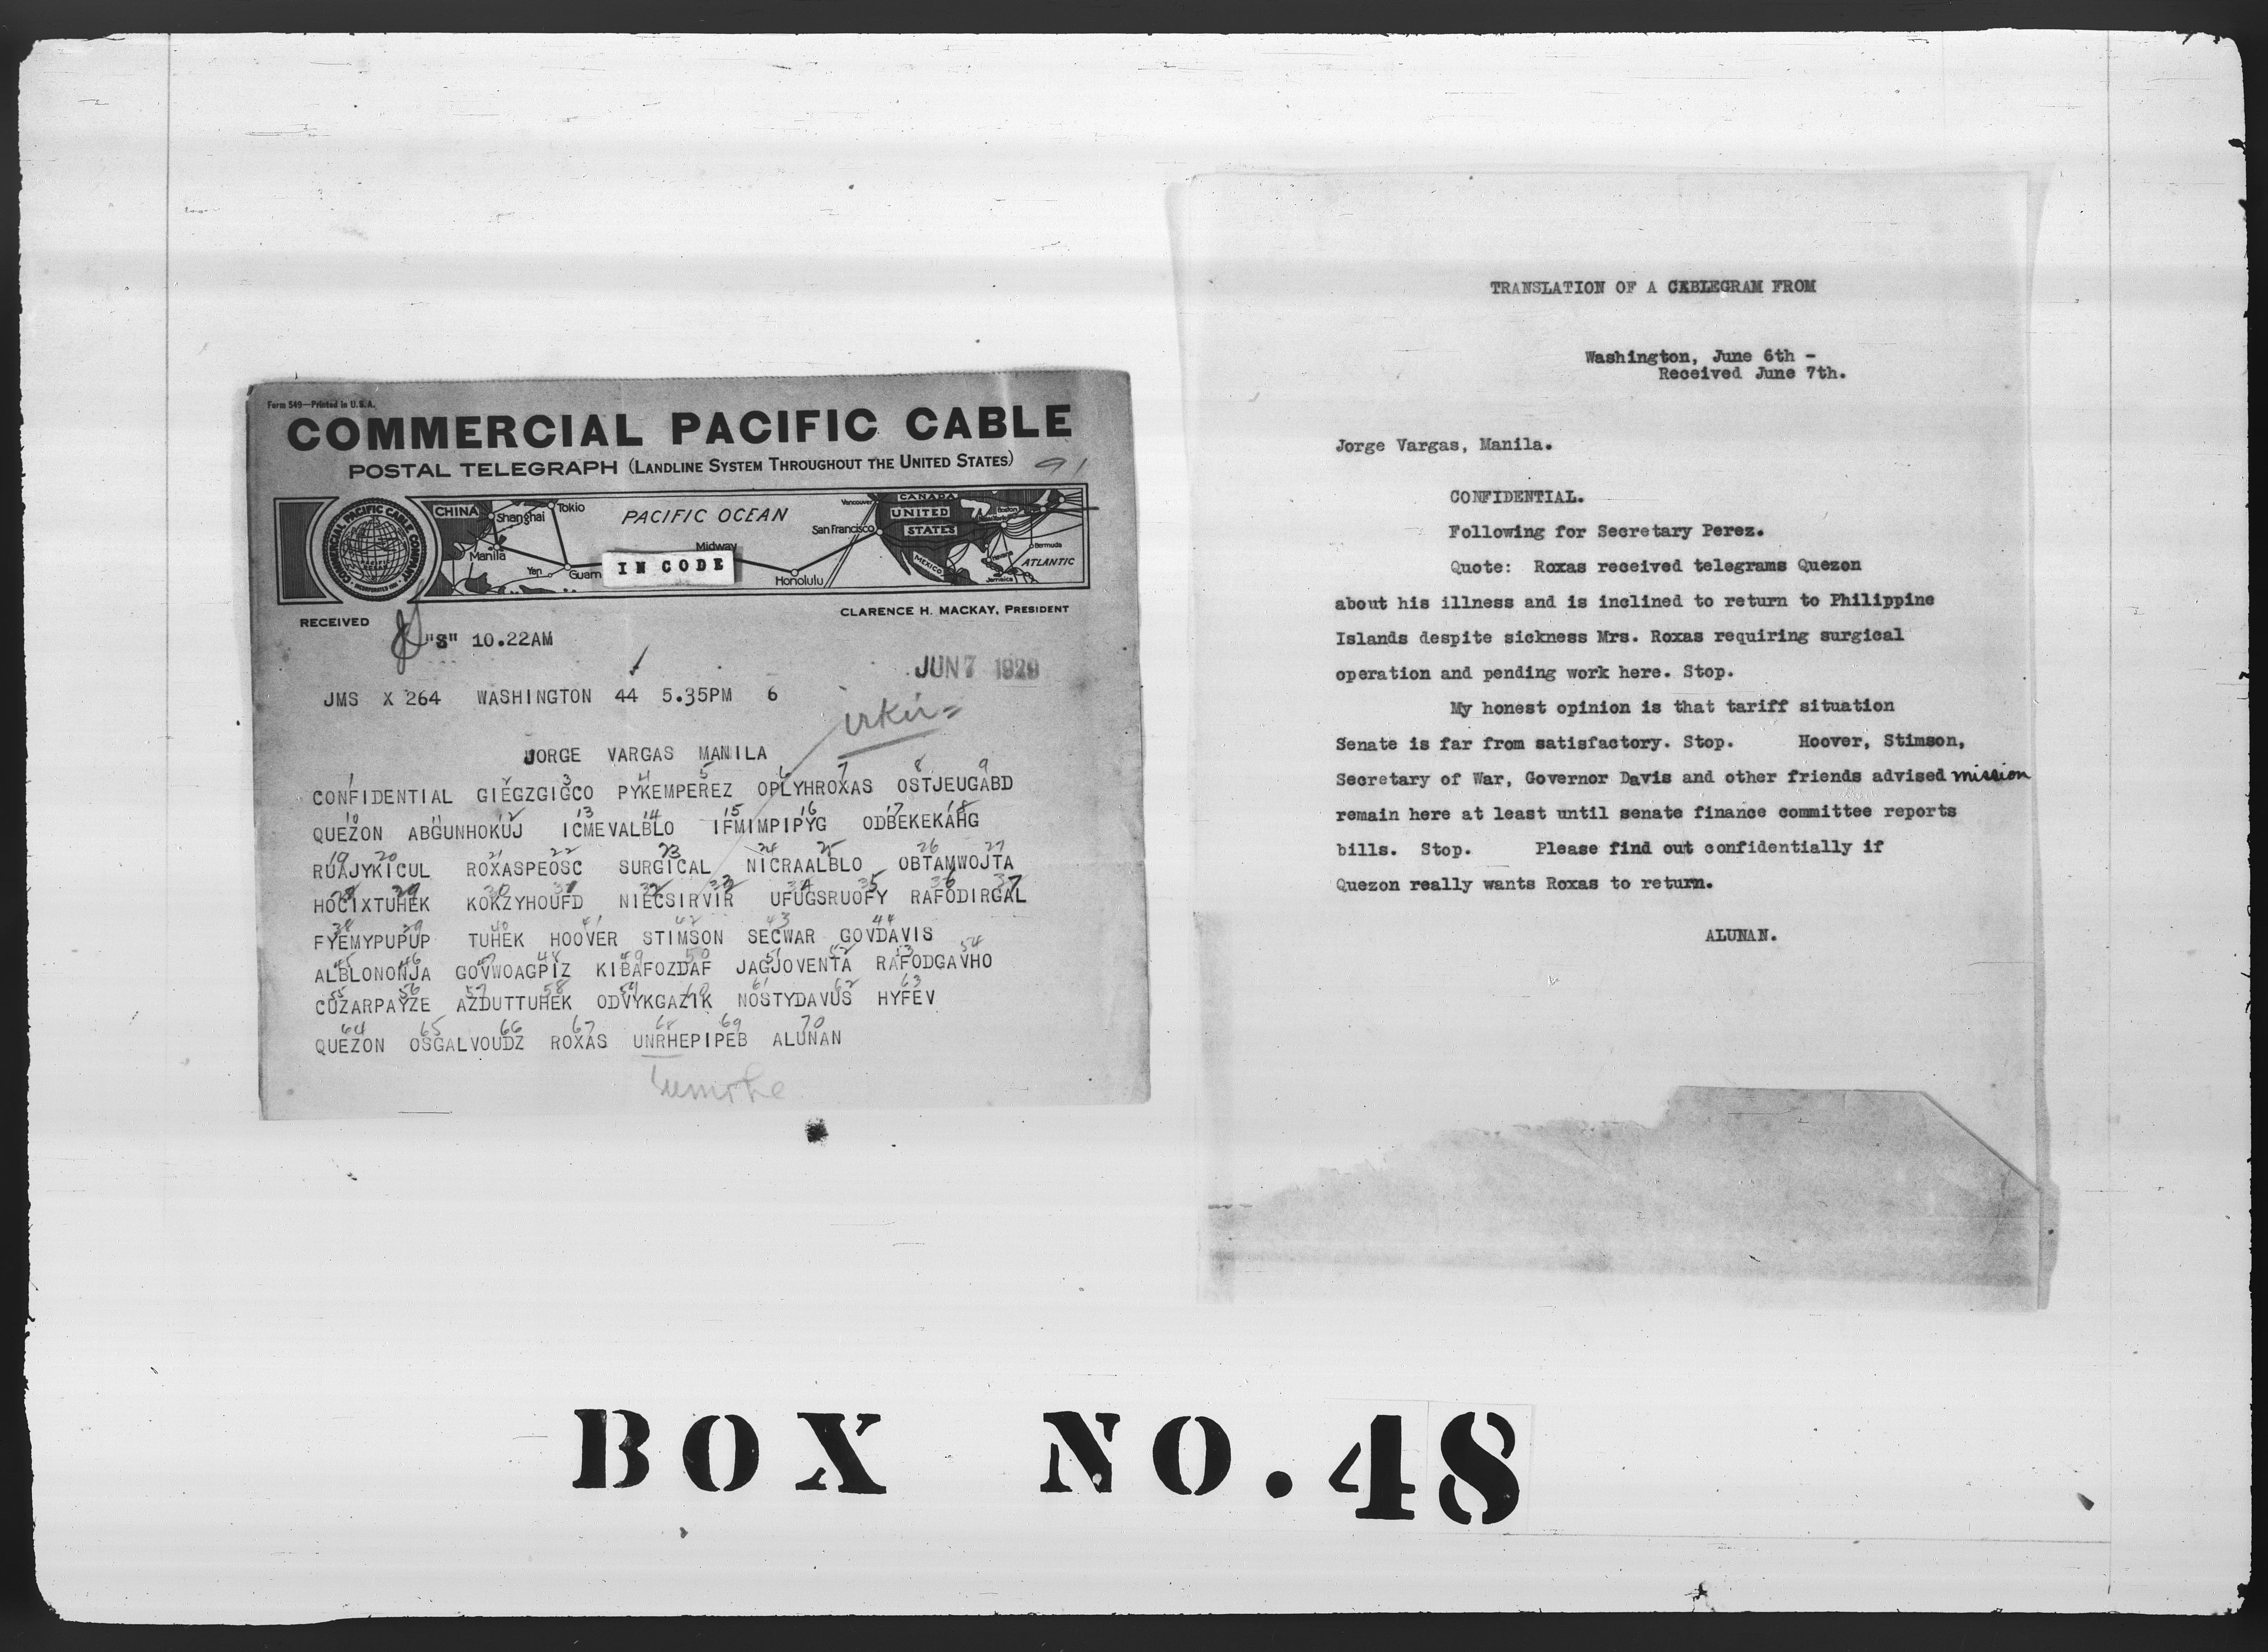 Form 549—Printed in U.S.A.
COMMERCIAL PACIFIC CABLE
POSTAL TELEGRAPH (LANDLINE SYSTEM THROUGHOUT THE UNITED STATES)
91
COMMERCIAL PACIFIC CABLE COMPANY
INCORPORATED 1901
CHINA
Shanghai
Tokio
Manila
Yap
Guam
PACIFIC OCEAN
Midway
IN CODE
Honolulu
San Francisco
Vancouver
CANADA
UNITED
STATES
MEXICO
Boston
New York
Bermuda
Havana
Jamaica
ATLANTIC
RECEIVED
CLARENCE H. MACKAY, PRESIDENT
"S" 10.22AM
JUN 7 1929
JMS X 264 WASHINGTON 44 5.35PM 6
JORGE VARGAS MANILA
1 2 3 4 5 6 7 8 9
CONFIDENTIAL GIEGZGIGCO PYKEMPEREZ OPLYHROXAS OSTJEUGABD
10 11 12 13 14 15 16 17 18
QUEZON ABGUNHOKUJ ICMEVALBLO IFMIMPIPYG ODBEKEKAHG
19 20 21 22 23 24 25 26 27
RUAJYKICUL ROXASPEOSC SURGICAL NICRAALBLO OBTAMWOJTA
28 29 30 31 32 33 34 35 36 37
HOCIXTUHEK KOKZYHOUFD NIECSIRVIR UFUGSRUOFY RAFODIRGAL
38 39 40 41 42 43 44
FYEMYPUPUP TUHEK HOOVER STIMSON SECWAR GOVDAVIS
45 46 47 48 49 50 51 52 53 54
ALBLONONJA GOVWOAGPIZ KIBAFOZDAF JAGJOVENTA RAFODGAVHO
55 56 57 58 59 60 61 62 63
CUZARPAYZE AZDUTTUHEK ODVYKGAZIK NOSTYDAVUS HYFEV
64 65 66 67 68 69 70
QUEZON OSGALVOUDZ ROXAS UNRHEPIPEB ALUNAN
TRANSLATION OF A CABLEGRAM FROM
Washington, June 6th -
Received June 7th.
Jorge Vargas, Manila.
CONFIDENTIAL.
Following for Secretary Perez.
Quote: Roxas received telegrams Quezon
about his illness and is inclined to return to Philippine
Islands despite sickness Mrs. Roxas requiring surgical
operation and pending work here. Stop.
My honest opinion is that tariff situation
Senate is far from satisfactory. Stop. Hoover, Stimson,
Secretary of War, Governor Davis and other friends advised mission
remain here at least until senate finance committee reports
bills. Stop. Please find out confidentially if
Quezon really wants Roxas to return.
ALUNAN.
BOX NO. 48